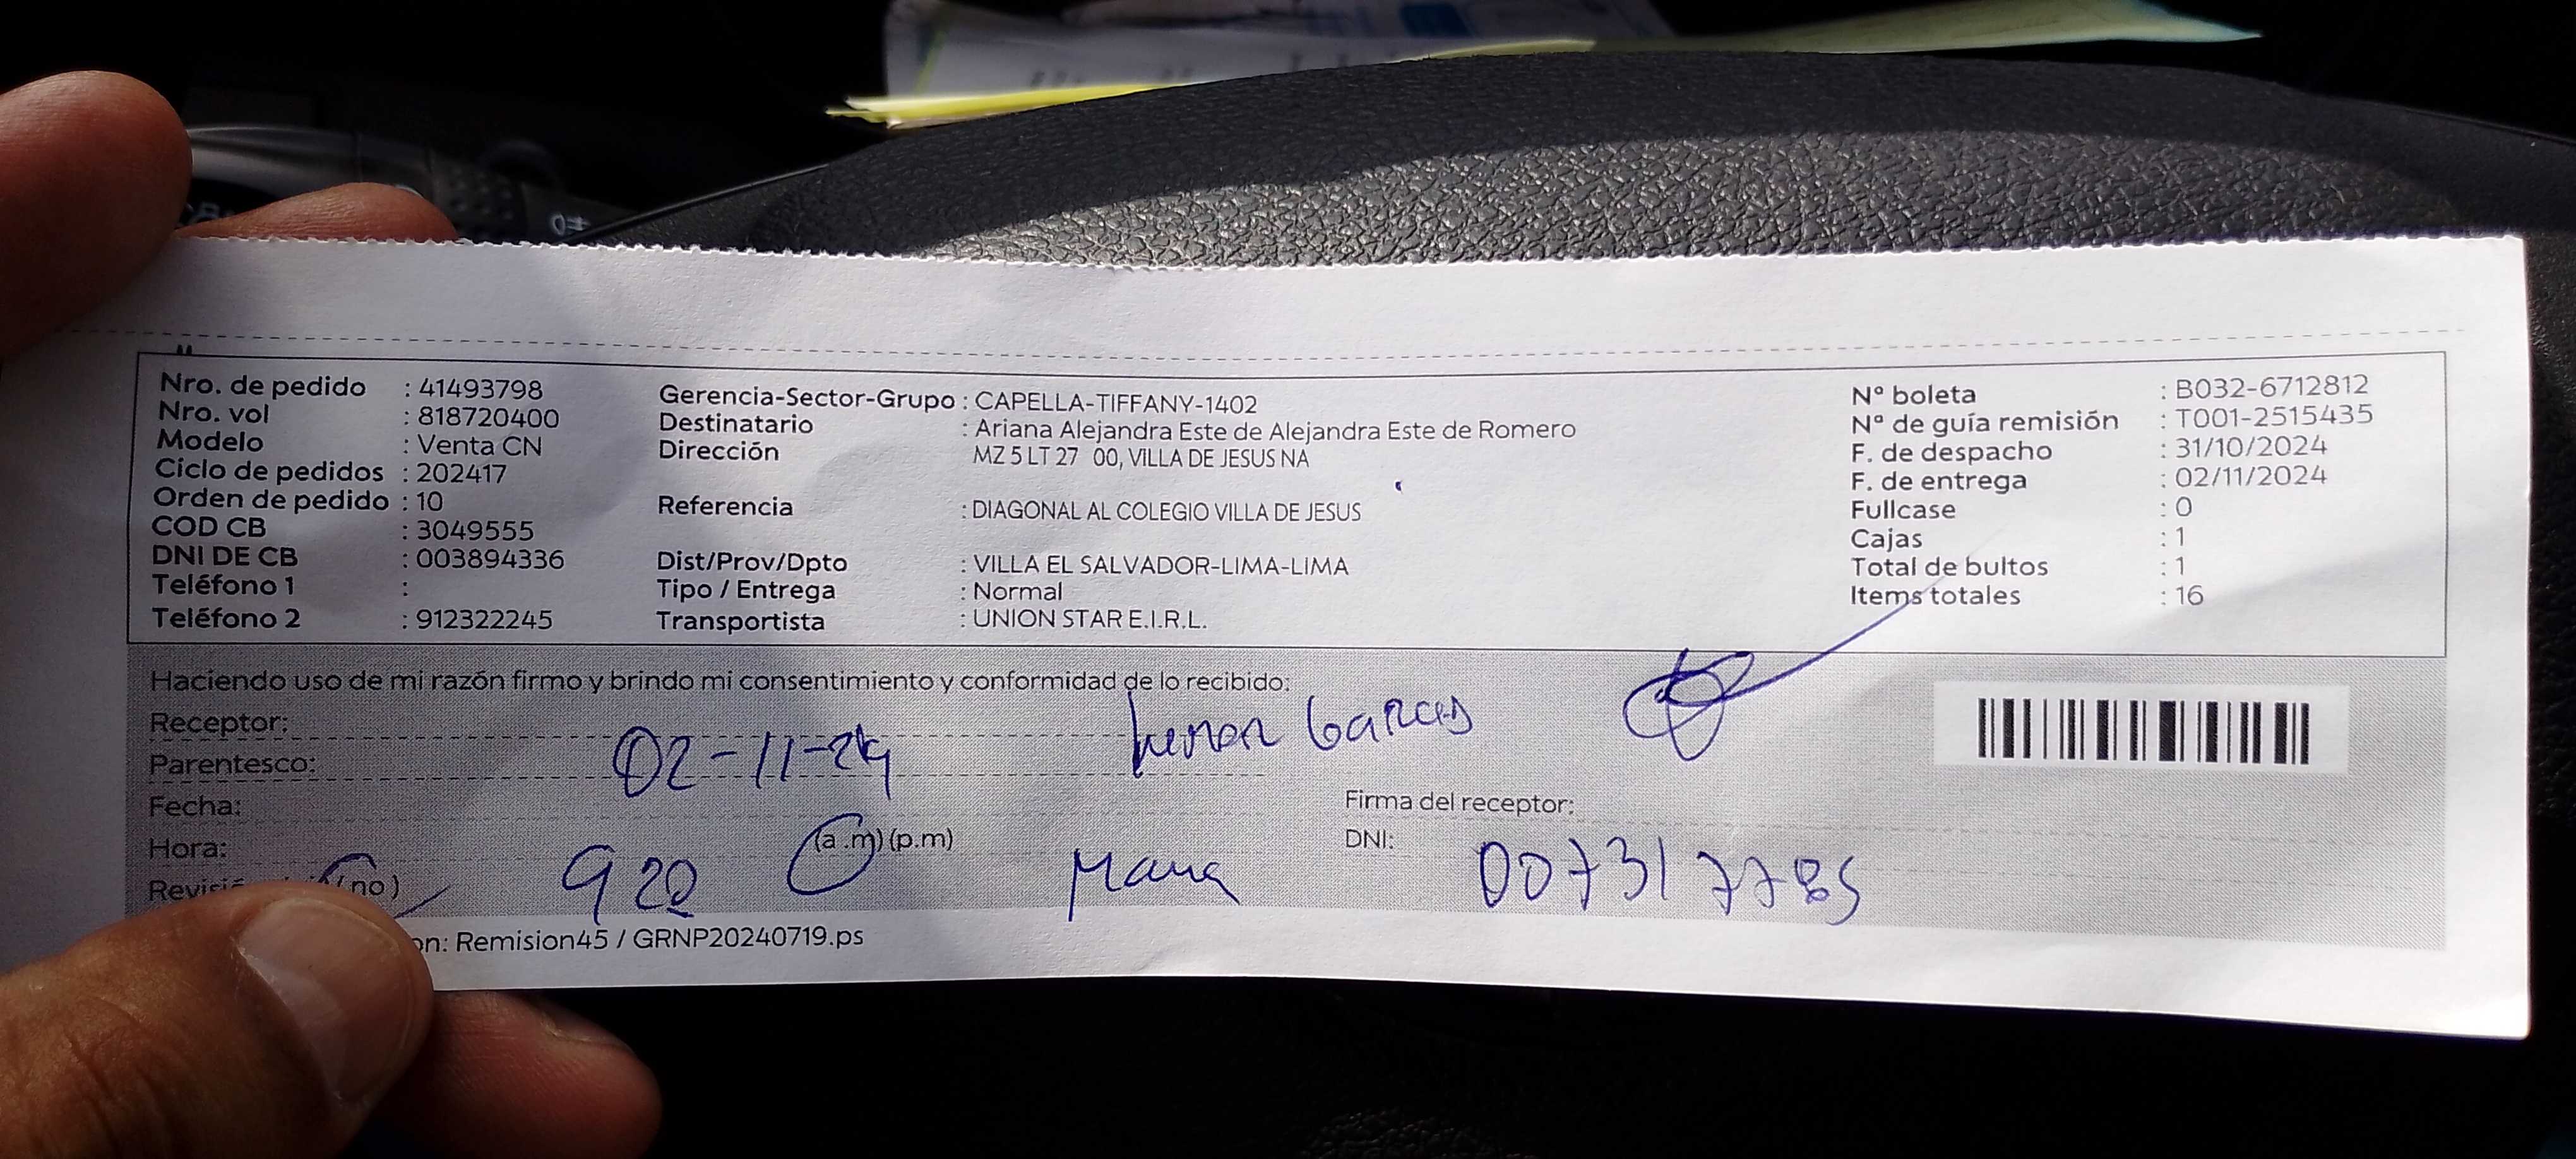 Nro. de pedido : 41493798
Nro. vol : 818720400
Modelo : Venta CN
Ciclo de pedidos : 202417
Orden de pedido : 10
COD CB : 3049555
DNI DE CB : 003894336
Teléfono 1 :
Teléfono 2 : 912322245
Gerencia-Sector-Grupo : CAPELLA-TIFFANY-1402
Destinatario : Ariana Alejandra Este de Alejandra Este de Romero
Dirección MZ 5 LT 27 00, VILLA DE JESUS NA
Referencia : DIAGONAL AL COLEGIO VILLA DE JESUS
Dist/Prov/Dpto : VILLA EL SALVADOR-LIMA-LIMA
Tipo / Entrega : Normal
Transportista : UNION STAR E.I.R.L.
Nº boleta : B032-6712812
Nº de guía remisión : T001-2515435
F. de despacho : 31/10/2024
F. de entrega : 02/11/2024
Fullcase : 0
Cajas : 1
Total de bultos : 1
Items totales : 16
Haciendo uso de mi razón firmo y brindo mi consentimiento y conformidad de lo recibido:
Receptor:
Parentesco:
02-11-24
Fecha:
Hora: (a.m) (p.m)
920
(no)
Firma del receptor:
DNI:
007317785
on: Remision45 / GRNP20240719.ps